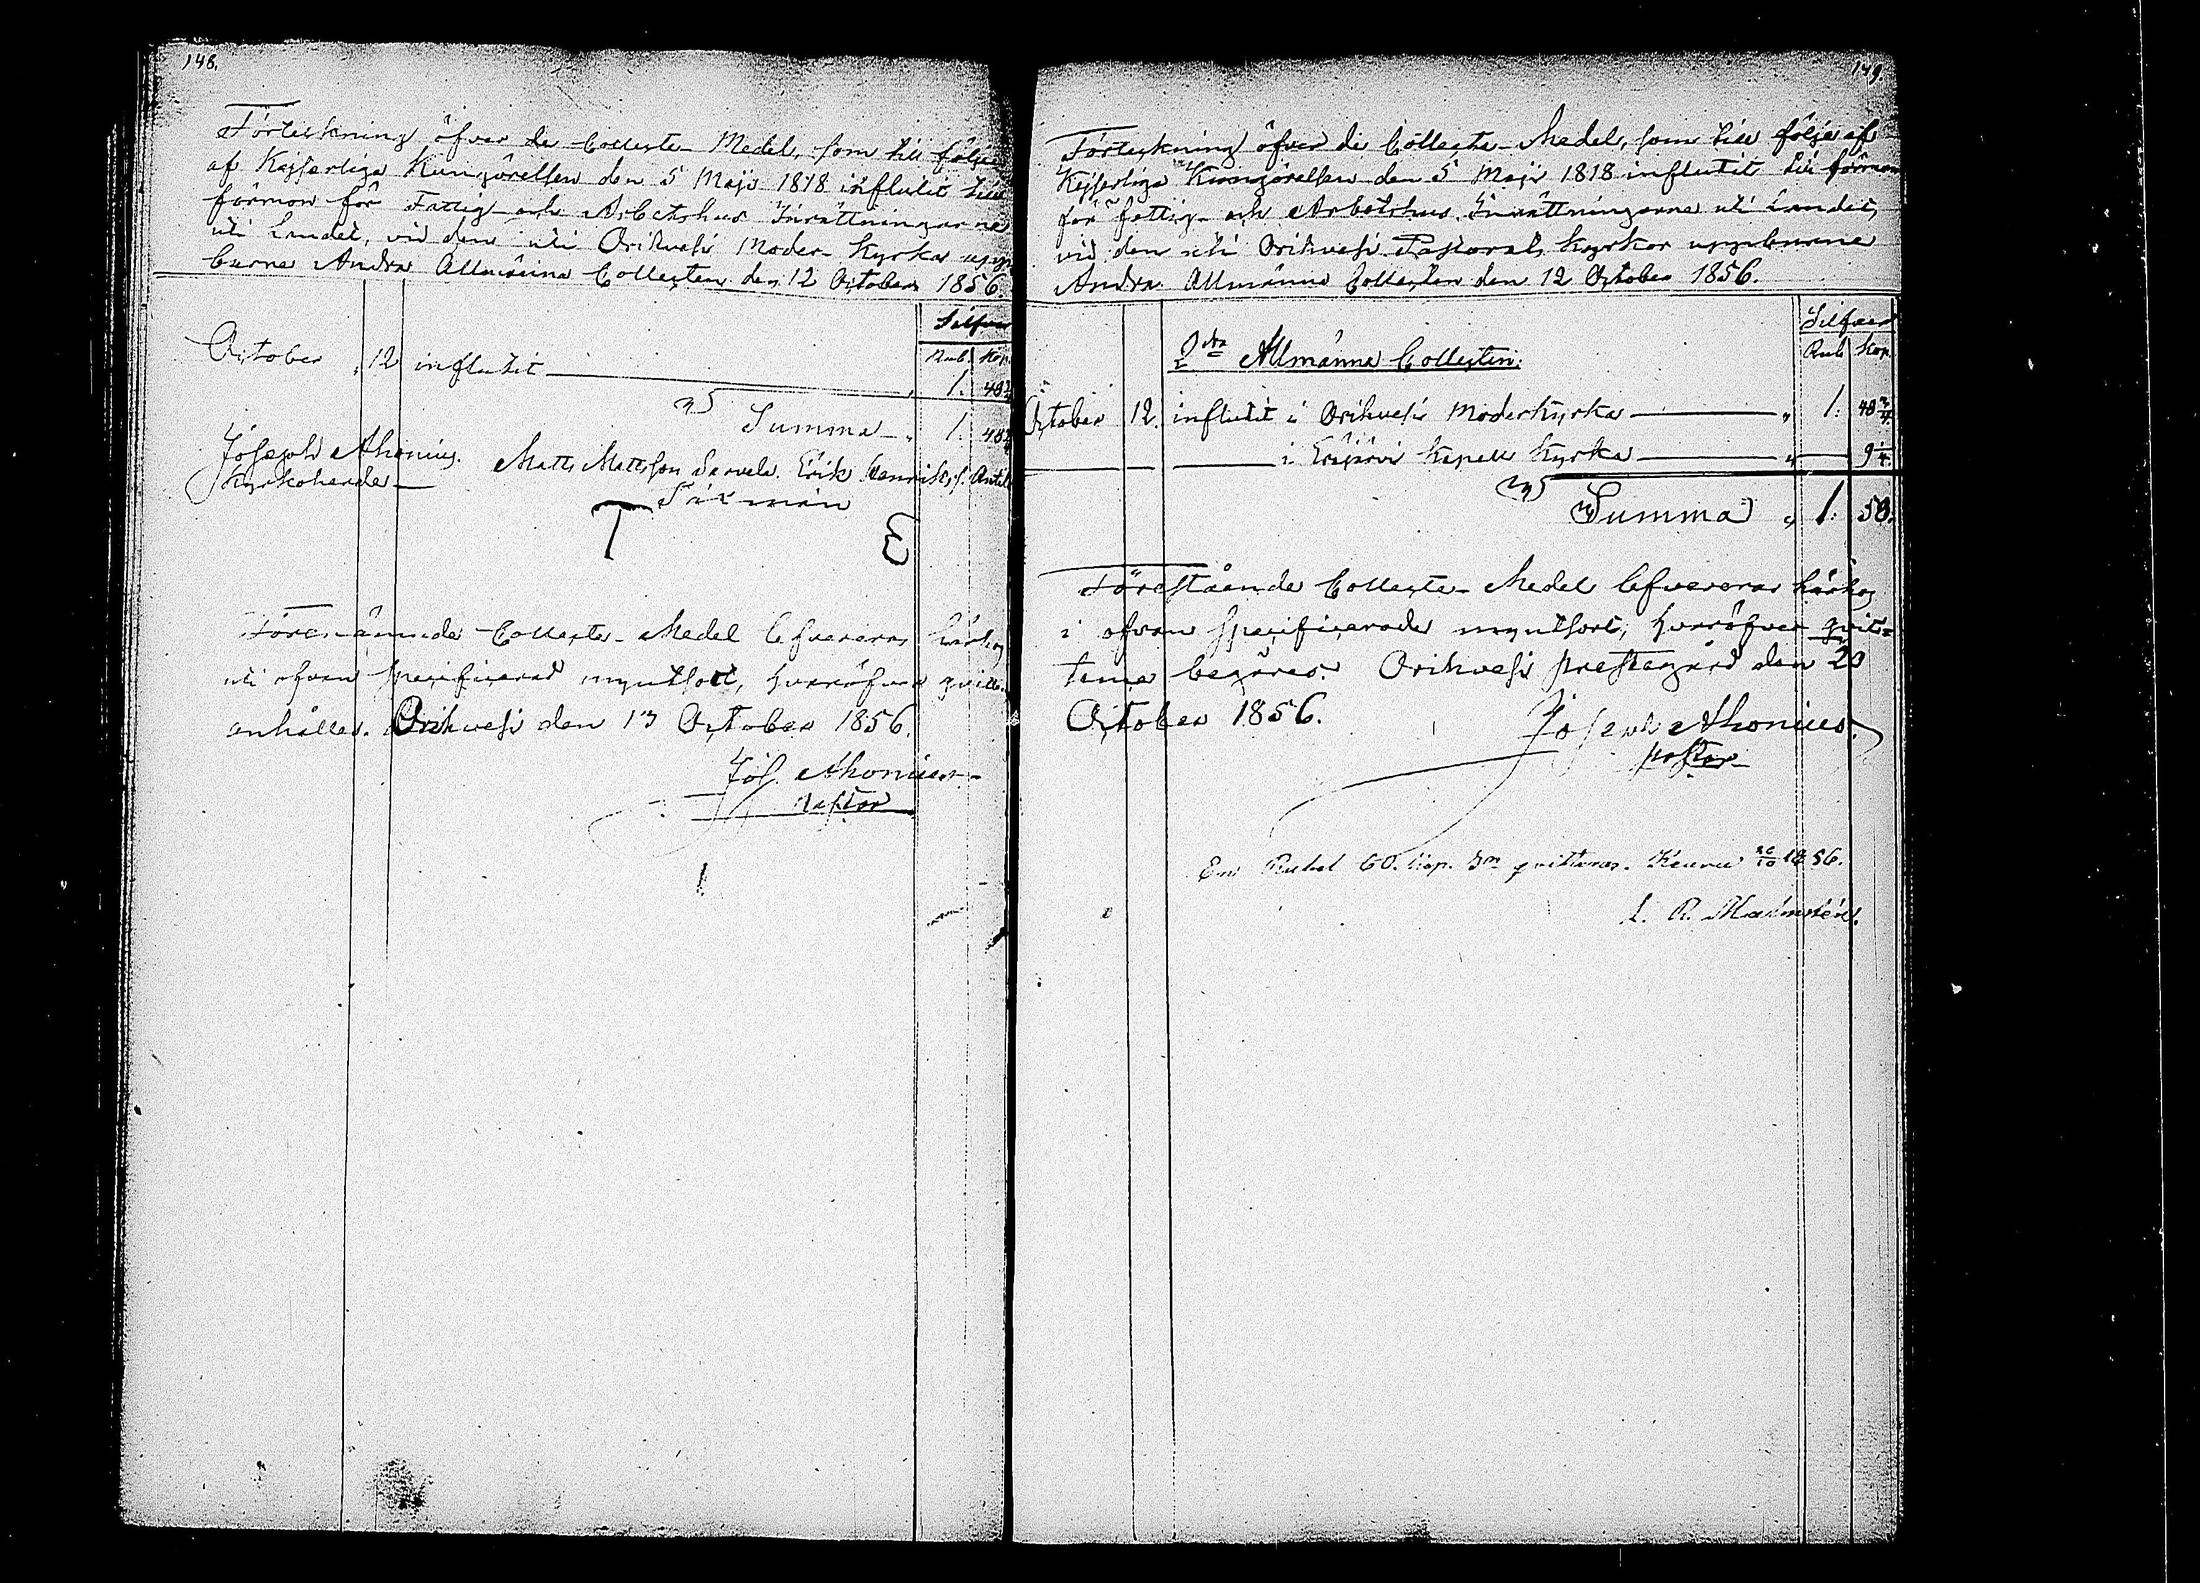 148.
Förteckning öfver de Collecte-Medel, som till följe
af Kejserliga Kungörelsen den 5 Maji 1818 influtit till
förmon för Fattig- och Arbetshus Inrättningarne
uti Landet, vid den uti Orihvesi Moder-Kyrka upp-
burne Andra Allmänna Collecten den 12 October 1856.
Silfver
Rub. Kop.
October 12 influtit 1. 48 3/4
Summa 1. 48 3/4
Joseph Ahonius. Matts Mattsson Sarvela. Erik Henriks s. Anttila
Kyrkoherde
Säxmän
T E
Förenämnde Collecte-Medel lefvereras härhos
uti ofvan specificerad myntsort, hvaröfver qvitt.
anhålles. Orihvesi den 13 October 1856.
Jos. Ahonius
Pastor
149.
Förteckning öfver de Collecte-Medel, som till följe af
Kejserliga Kungörelsen den 5 Maji 1818 influtit till förmon
för Fattig- och Arbetshus Inrättningarne uti Landet,
vid den uti Orihvesi Pastorats kyrkor uppburne
Andra Allmänna Collecten den 12 October 1856.
Silfver
Rub. Kop.
2dra Allmänna Collecten.
October 12. influtit i Orihvesi Moderkyrka 1. 48 3/4
i Eräjärvi Kapell Kyrka 9 1/4.
Summa 1. 58.
Förestående Collecte-Medel lefvereras härhos
i ofvan specificerade myntsort, hvaröfver qvit-
tens begäres. Orihvesi prestegård den 20
October 1856.
Joseph Ahonius.
pastor
En Rubel 60. Kop. Sm qvitteras. Keuru 26/10 1856.
L. R. Malmstén.